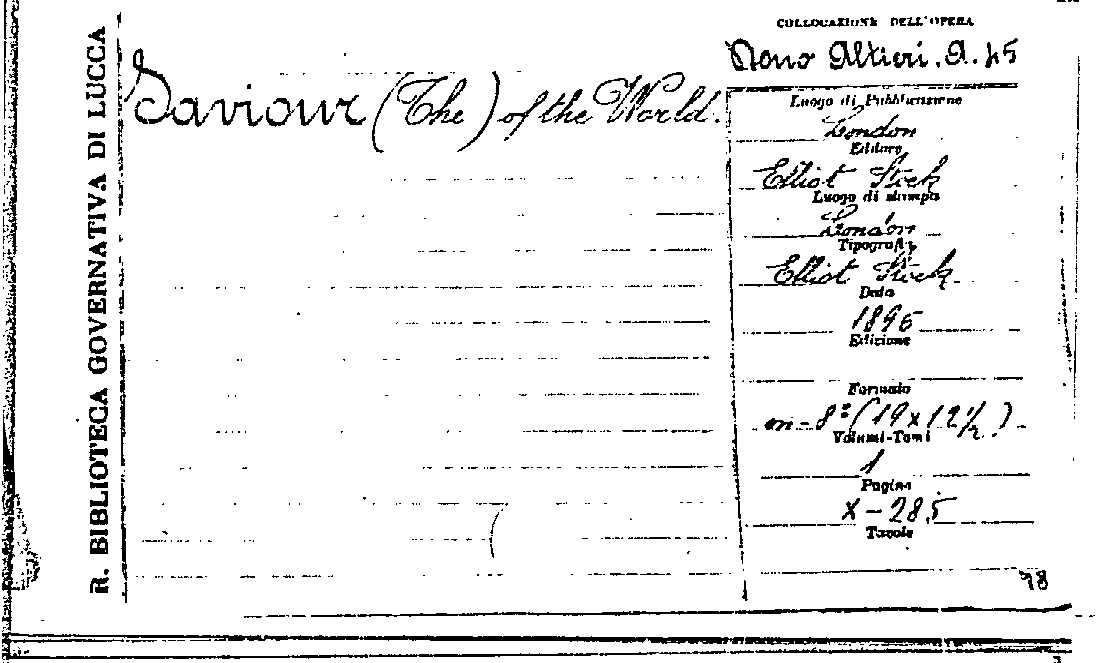 R. BIBLIOTECA GOVERNATIVA DI LUCCA
Saviour (The) of the World.
COLLOCAZIONE DELL'OPERA
Altieri. A. 45
Luogo di Pubblicazione
London
Editore
Elliot Stock
Luogo di stampa
London
Tipografia
Elliot Stock
Data
1896
Edizione
Formato
in-8° (19 x 12 1/2)
Volumi-Tomi
1
Pagine
X-285
Tavole
78